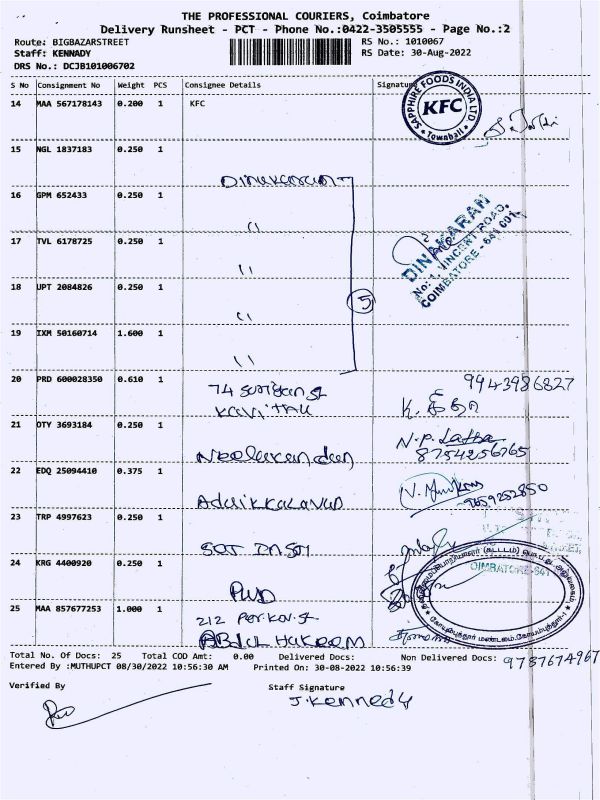 THE PROFESSIONAL COURIERS, Coimbatore
Delivery Runsheet - PCT - Phone No.:0422-3505555 - Page No.:2
Route: BIGBAZARSTREET RS No.: 1010067
Staff: KENNADY RS Date: 30-Aug-2022
DRS No.: DCJB101006702
S No Consignment No Weight PCS Consignee Details Signature
14 MAA 567178143 0.200 1 KFC
SAPPHIRE FOODS INDIA LTD
KFC
Townhall
15 NGL 1837183 0.250 1
Dinakaran
16 GPM 652433 0.250 1
"
17 TVL 6178725 0.250 1
"
DINAKARAN
No: 1, VINCENT ROAD,
COIMBATORE - 641 001.
18 UPT 2084826 0.250 1
"
5
19 IXM 50160714 1.600 1
"
20 PRD 600028350 0.610 1 74 9943986827
Kavitha
21 OTY 3693184 0.250 1 N.P. Latha
Neelakandan 8754256765
22 EDQ 25094410 0.375 1
Adaikkalavan 9659252850
23 TRP 4997623 0.250 1
24 KRG 4400920 0.250 1
PWD
COIMBATORE-641
25 MAA 857677253 1.000 1 212 Per.Kov.St
Abdul Hakeem
Total No. Of Docs: 25 Total COD Amt: 0.00 Delivered Docs: Non Delivered Docs: 9787674967
Entered By :MUTHUPCT 08/30/2022 10:56:30 AM Printed On: 30-08-2022 10:56:39
Verified By Staff Signature
J.Kennedy